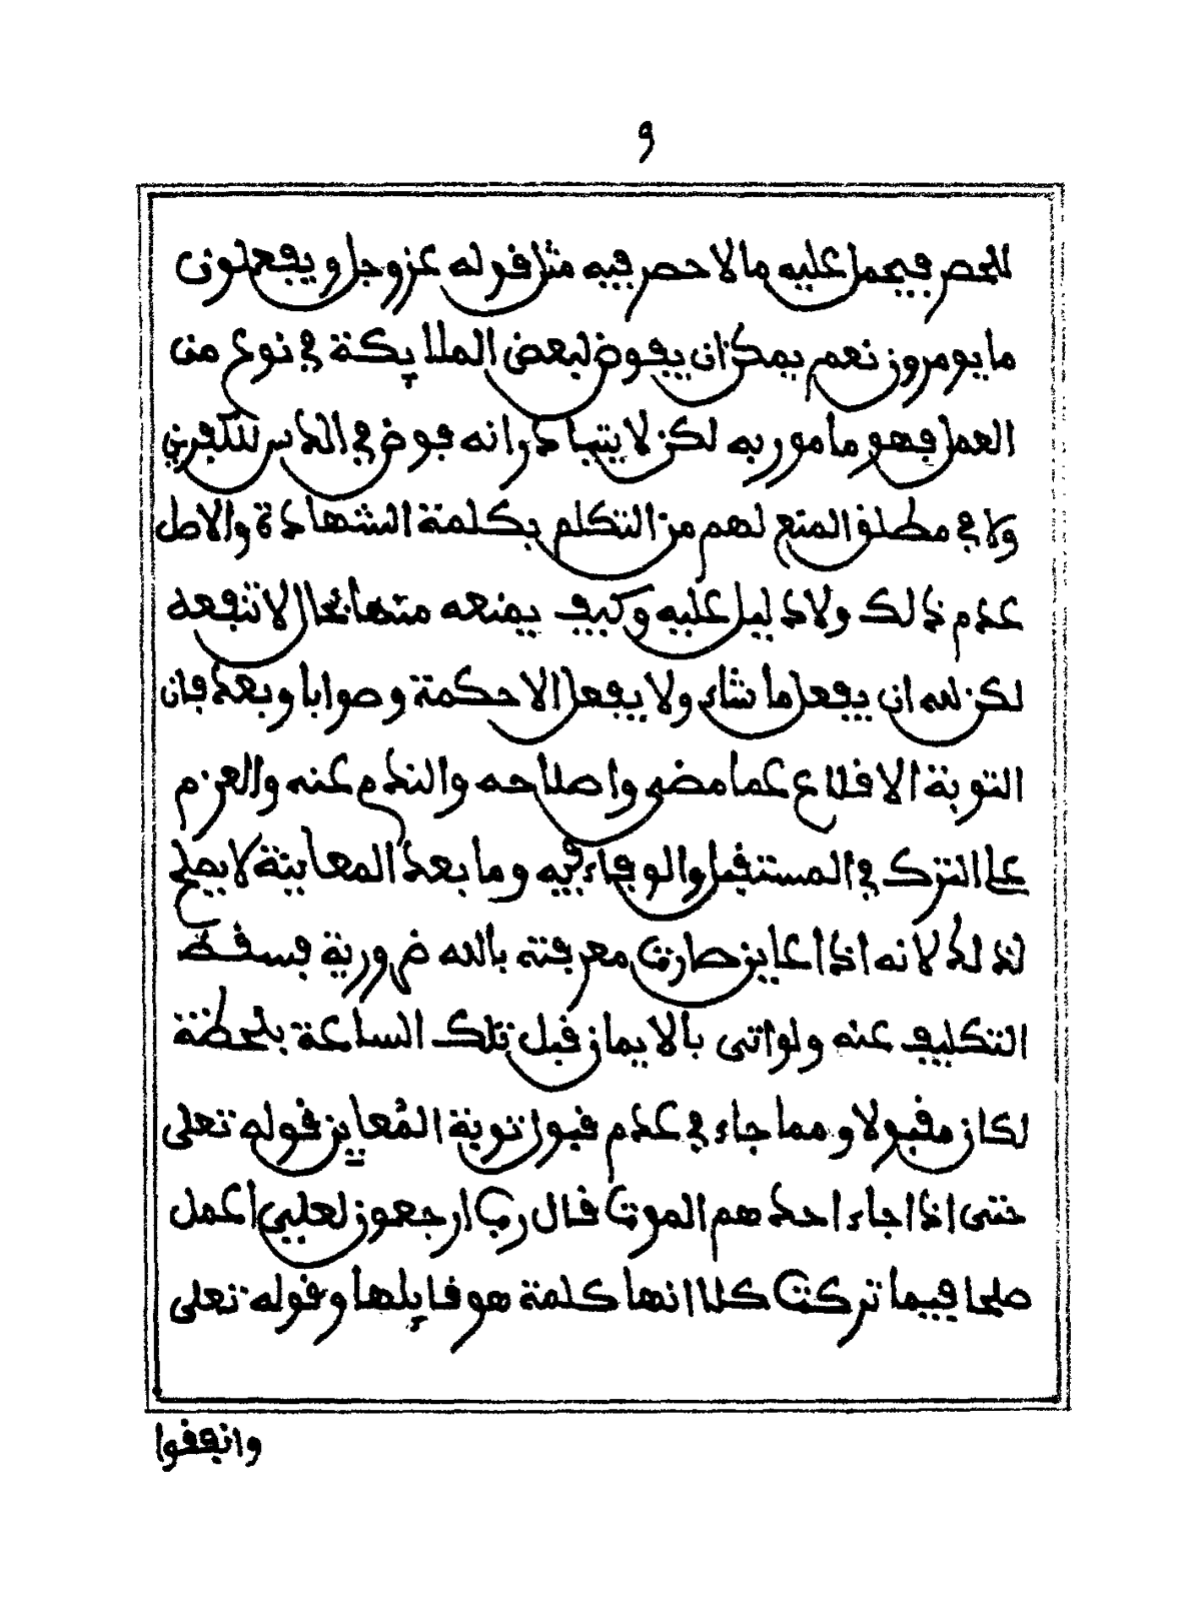 ٩
للحصر فيحمل عليه مالا حصر فيه مثل قوله عزوجل ويفعلون
ما يومرون نعم يمكن ان يفوض لبعض الملايكة في نوع من
العمل فهو مامور به لكن لا يتبادر انه فوض في الدس للكفرين
ولا في مطلق المنع لهم من التكلم بكلمة الشهادة والاصل
عدم ذلك ولا دليل عليه وكيف يمنعه منها بحال لا تنفعه
لكن لله ان يفعل ما شاء ولا يفعل الا حكمة وصوابا وبعد فان
التوبة الاقلاع عما مضى واصلاحه والندم عنه والعزم
على الترك في المستقبل والوفاء فيه وما بعد المعاينة لا يصلح
لذلك لانه اذا عاين صارت معرفته بالله ضرورية فسقط
التكليف عنه ولو اتى بالايمان قبل تلك الساعة بلحظة
لكان مقبولا ومما جاء في عدم قبول توبة المُعاين قوله تعلى
حتى اذا جاء احدهم الموت قال رب ارجعون لعلي اعمل
صلحا فيما تركت كلا انها كلمة هو قايلها وقوله تعلى
وانفقوا